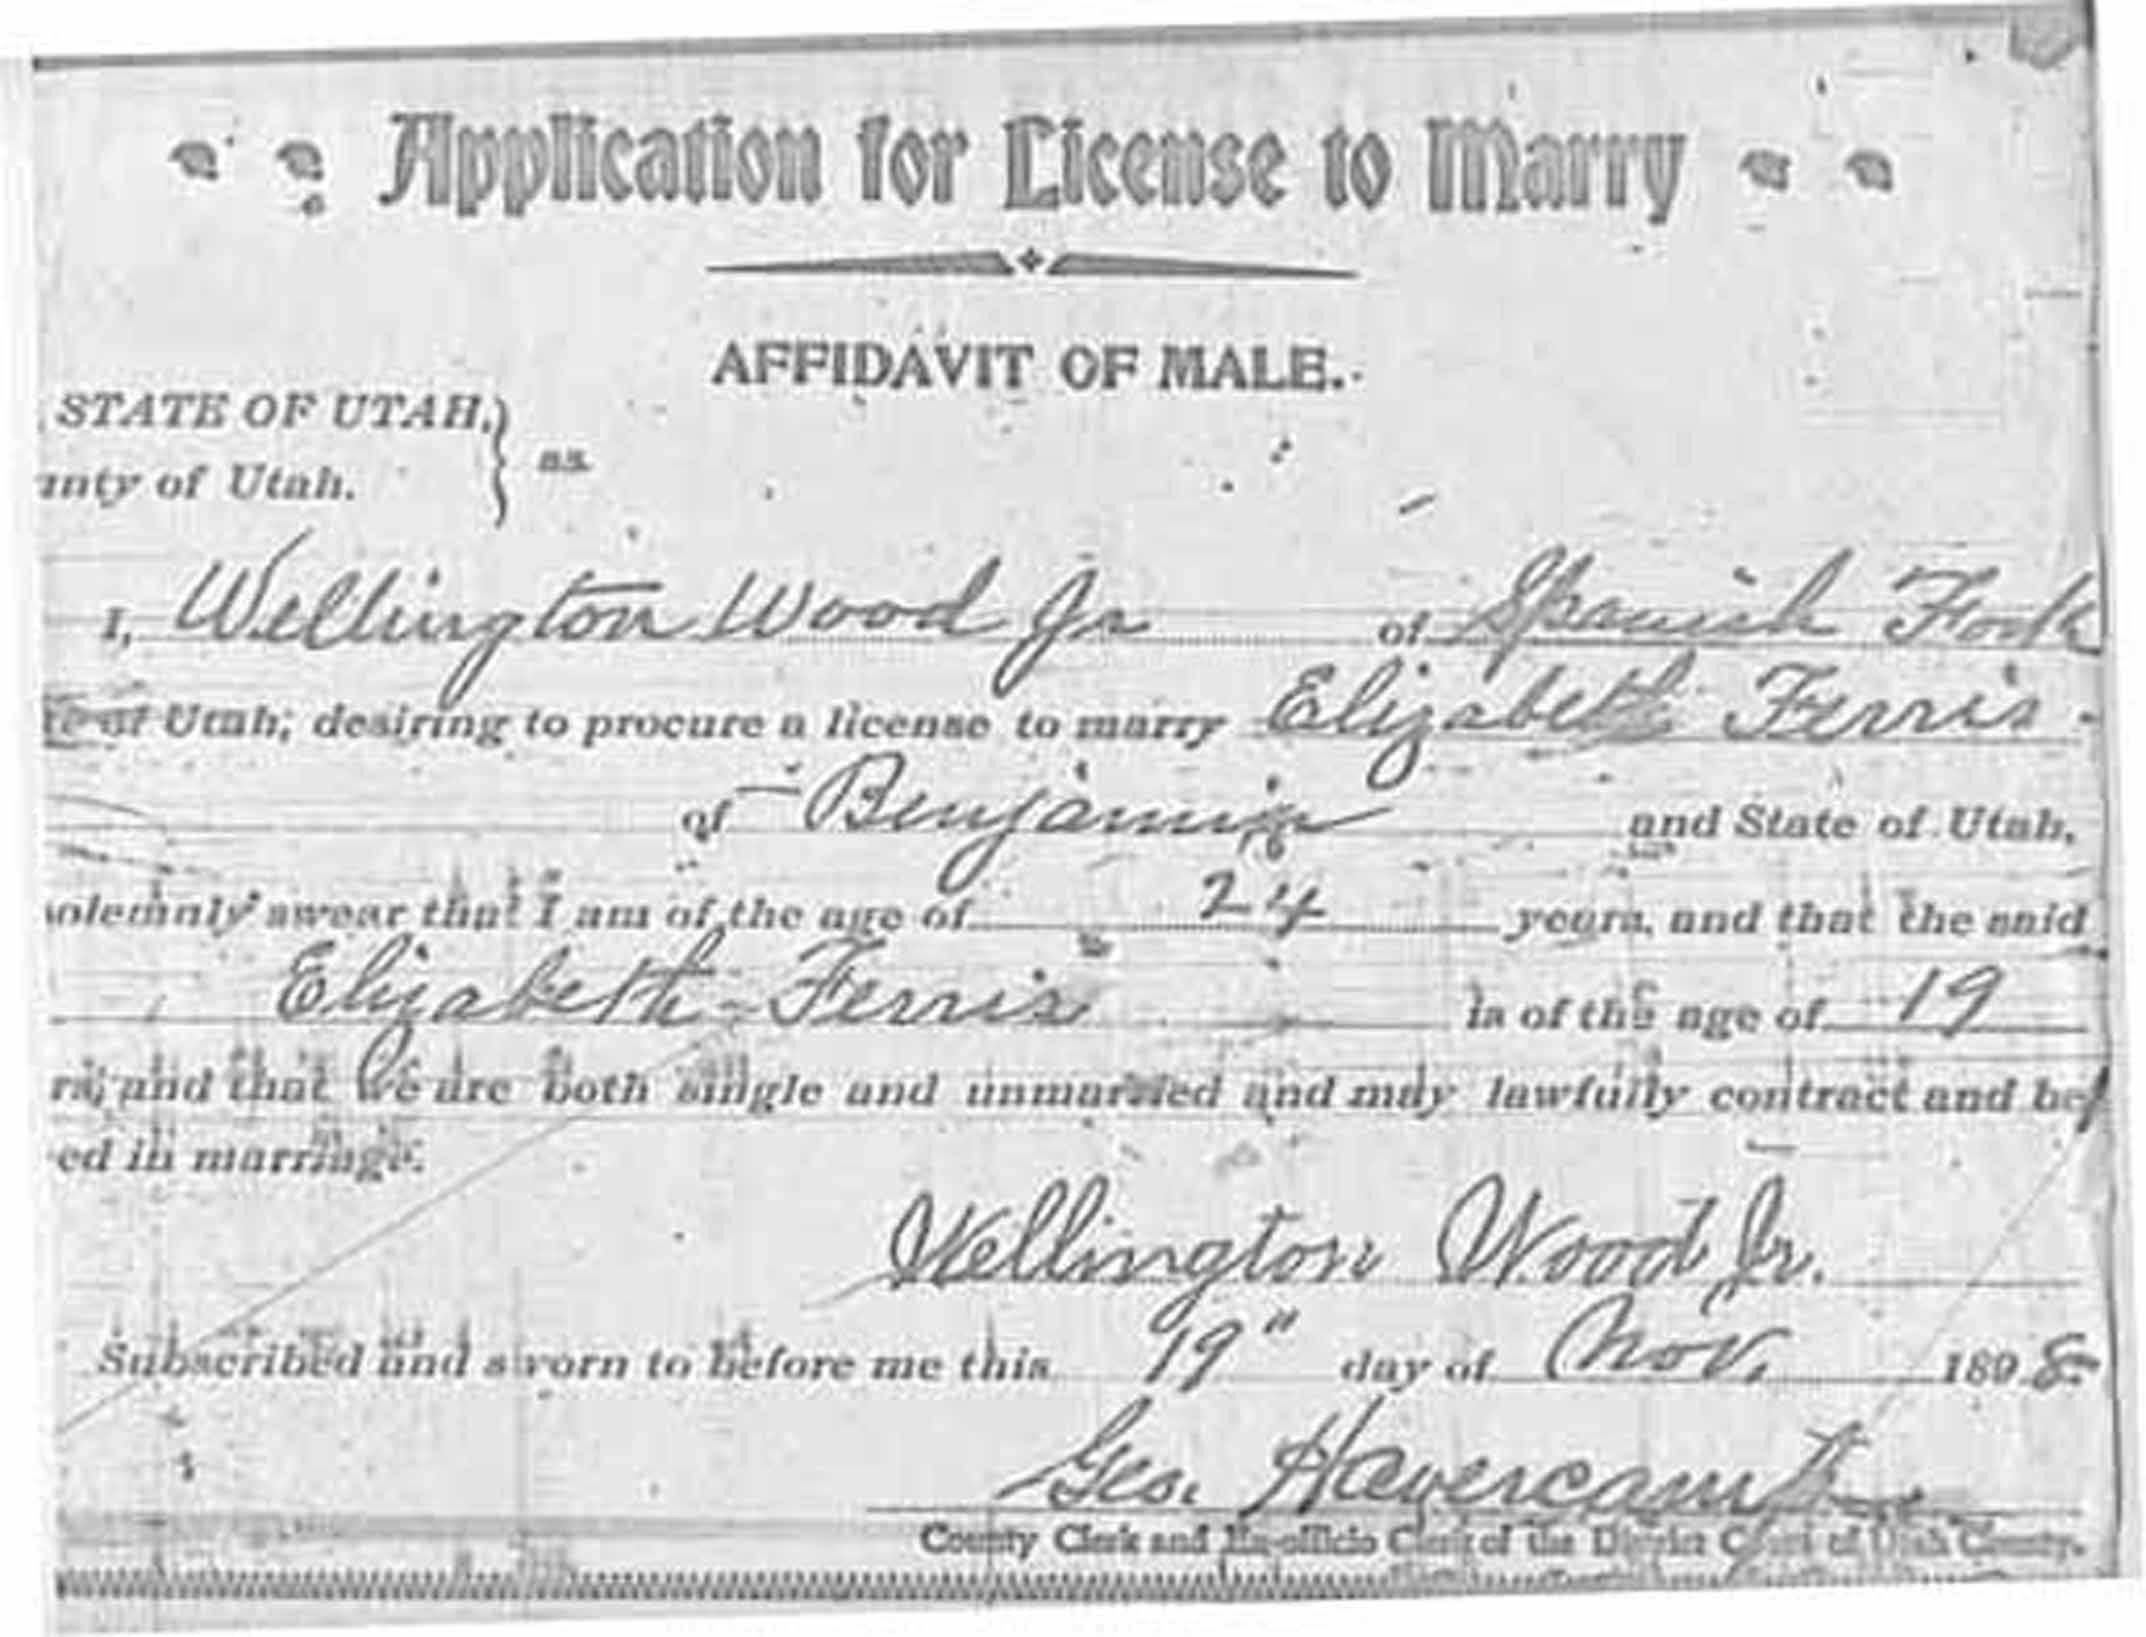 Application for License to Marry
AFFIDAVIT OF MALE.
STATE OF UTAH,
unty of Utah. } ss.
I, Wellington Wood Jr of Spanish Fork
te of Utah, desiring to procure a license to marry Elizabeth Ferris
of Benjamin and State of Utah,
solemnly swear that I am of the age of 24 years, and that the said
Elizabeth Ferris is of the age of 19
rs, and that we are both single and unmarried and may lawfully contract and be
ed in marriage.
Wellington Wood Jr.
Subscribed and sworn to before me this 19" day of Nov. 1898
Geo. Havercamp
County Clerk and Ex-officio Clerk of the District Court of Utah County.